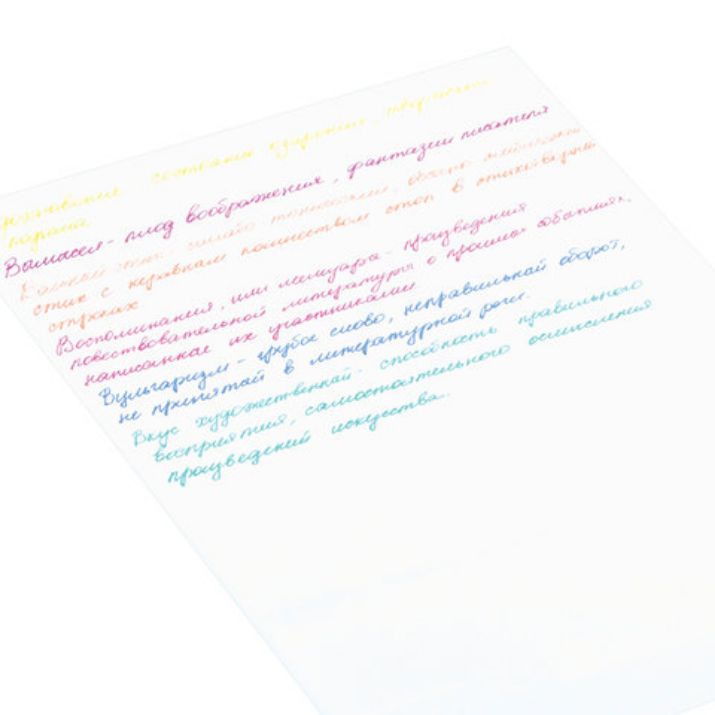 состояние
парана
Вымысел - плод воображения, фантазии писателя
Вольный стих
стих с неравным количеством стоп в стихотворных
строках
Воспоминания, или мемуары - произведения
повествовательной литературы о прошлых событиях,
написанные их участниками
Вульгаризм - грубое слово, неправильный оборот,
не принятый в литературной речи.
Вкус художественный - способность правильного
восприятия, самостоятельного осмысления
произведений искусства.